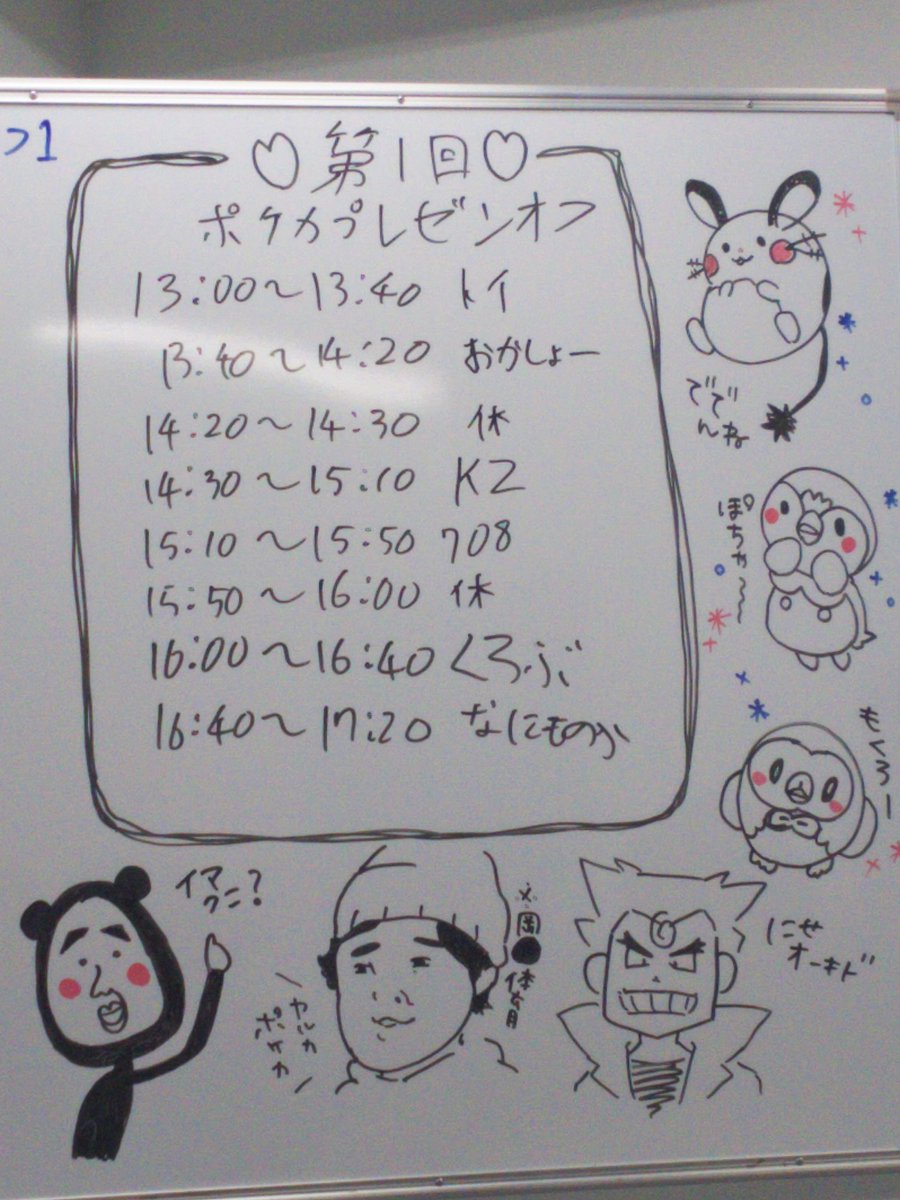 フ1
♡第1回♡
ポケカプレゼンオフ
13:00〜13:40 トイ
13:40〜14:20 おかしょー
14:20〜14:30 休
14:30〜15:10 KZ
15:10〜15:50 708
15:50〜16:00 休
16:00〜16:40 くろぶ
16:40〜17:20 なにものか
でで
んね
ぽちゃ〜〜
もくろー
イマ
クニ?
岡●体育
\カルカ
ポケカ/
にせ
オーキド